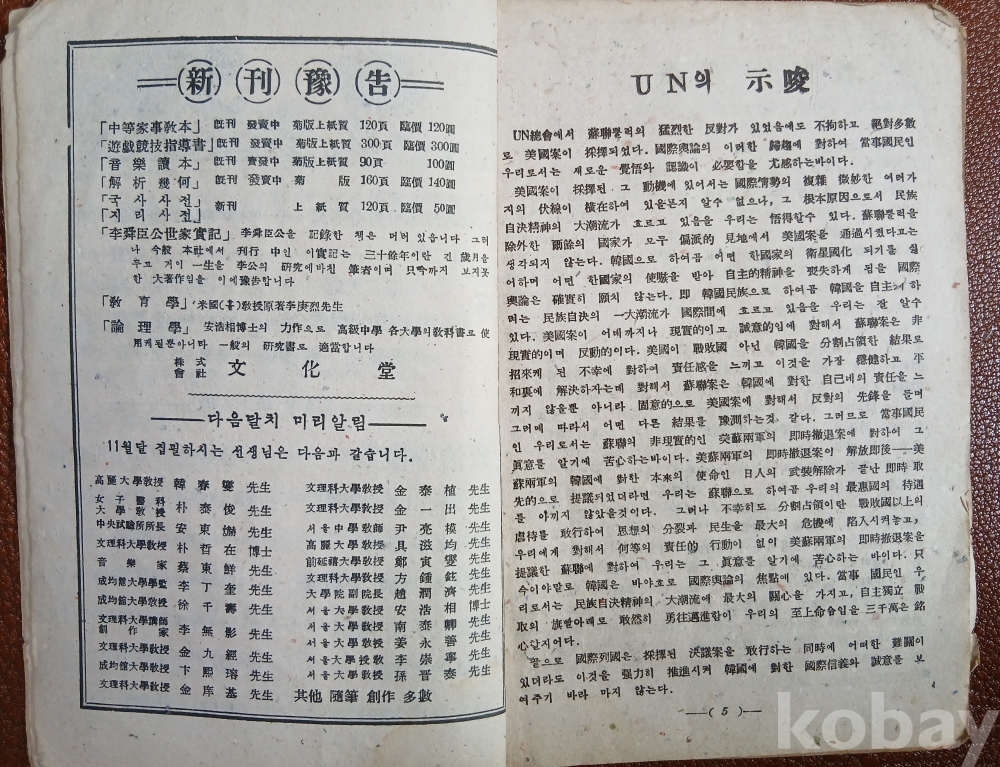 新刊豫告
「中等家事敎本」 旣刊 發賣中 菊版上紙質 120頁 臨價 120圓
「遊戲競技指導書」旣刊 發賣中 菊版上紙質 300頁 臨價 300圓
「音樂讀本」 旣刊 賣發中 菊版上紙質 90頁 100圓
「解析幾何」 旣刊 發賣中 菊 版 160頁 臨價 140圓
「국사사전」
「지리사전」 新刊 上紙質 120頁 臨價 50圓
「李舜臣公世家實記」 李舜臣公을 記錄한 책은 머어 있습니다 그러
나 今般 本社에서 刊行 中인 이實記는 三十餘年이란 긴 歲月을
두고 거이 一生을 李公의 硏究에바친 筆者이며 只今까지 보지못
한 大著作임을 이에豫告합니다
「敎育學」 米國 敎授原著李庚烈先生
「論理學」 安浩相博士의 力作으로 高級中學 各大學의敎科書로 使
用케될뿐아니라 一般의 硏究書로 適當합니다
株式會社 文化堂
다음달치 미리알림
11월달 집필하시는 선생님은 다음과 같습니다.
高麗大學敎授 韓春燮 先生
女子醫科大學敎授 朴泰俊 先生
中央試驗所所長 安東 先生
文理科大學敎授 朴哲在 博士
音樂家 蔡東鮮 先生
成均館大學學監 李丁奎 先生
成均館大學敎授 徐千壽 先生
文理科大學講師 創作家 李無影 先生
文理科大學敎授 金九經 先生
成均館大學敎授 卞熙瑢 先生
文理科大學敎授 金庠基 先生
文理科大學敎授 金泰植 先生
文理科大學敎授 金一出 先生
서울中學敎師 尹亮模 先生
高麗大學敎授 具滋均 先生
前延禧大學敎授 鄭寅燮 先生
文理科大學敎授 方鍾鉉 先生
大學院副院長 趙潤濟 先生
서울大學敎授 安浩相 博士
서울大學敎授 南泰卿 先生
서울大學敎授 姜永善 先生
서울大學敎授 李崇寧 先生
서울大學敎授 孫晋泰 先生
其他 隨筆 創作 多數
UN의 示唆
UN總會에서 蘇聯뿔럭의 猛烈한 反對가 있었음에도 不拘하고 絕對多數
로 美國案이 採擇되었다. 國際輿論의 이러한 歸趨에 對하여 當事國民인
우리로서는 새로운 覺悟와 認識이 必要함을 尤感하는바이다.
美國案이 採擇된 그 動機에 있어서는 國際情勢의 複雜 微妙한 여러가
지의 伏線이 橫在하여 있을른지 알수 없으나, 그 根本原因으로서 民族
自決精神의 大潮流가 흐르고 있음을 우리는 悟得할수 있다. 蘇聯뿔럭을
除外한 爾餘의 國家가 모두 偏派的 見地에서 美國案을 通過시켰다고는
생각되지 않는다. 韓國으로 하여곰 어떤 한國家의 衛星國化 되기를 싫
어하며 어떤 한國家의 使嗾을 받아 自主的精神을 喪失하게 됨을 國際
輿論은 確實히 願치 않는다. 卽 韓國民族으로 하여곰 韓國을 自主케 하
려는 民族自決의 一大潮流가 國際間에 흐르고 있음을 우리는 잘 알수
있다. 美國案이 어데까지나 現實的이고 誠意的임에 對해서 蘇聯案은 非
現實的이며 反動的이다. 美國이 戰敗國 아닌 韓國을 分割占領한 結果로
招來케 된 不幸에 對하여 責任感을 느끼고 이것을 가장 穩健하고 平
和裏에 解決하자는데 對해서 蘇聯案은 韓國에 對한 自己네의 責任을 느
끼지 않을뿐 아니라 固意的으로 美國案에 對해서 反對의 先鋒을 들며
그에에 따라서 어떤 다른 結果를 豫測하는것 같다. 그러므로 當事國民
인 우리로서는 蘇聯의 非現實的인 美蘇兩軍의 卽時撤退案에 對하여 그
眞意를 알기에 苦心하는바이다. 美蘇兩軍의 卽時撤退案이 解放卽後—美
蘇兩軍의 韓國에 對한 本來의 使命인 日人의 武裝解除가 끝난 卽時 取
先的으로 提議되었더라면 우리는 蘇聯으로 하여곰 우리의 最惠國의 待遇
를 아끼지 않았을것이다. 그러나 不幸히도 分割占領이란 戰敗國以上의
虐待를 敢行하여 思想의 分裂과 民生을 最大의 危機에 陷入시켜놓고,
우리에게 對해서 何等의 責任的 行動이 없이 美蘇兩軍의 卽時撤退案을
提議한 蘇聯에 對하여 우리는 그 眞意를 알기에 苦心하는 바이다. 只
今이야말로 韓國은 바야흐로 國際輿論의 焦點에 있다. 當事 國民인 우
리로서는 民族自決精神의 大潮流에 最大의 關心을 가지고, 自主獨立 戰
取의 旗빨아래로 敢然히 勇往邁進함이 우리의 至上命令임을 三千萬은 銘
心할지어다.
끝으로 國際列國은 採擇된 決議案을 敢行하는 同時에 어떠한 難關이
있더라도 이것을 强力히 推進시켜 韓國에 對한 國際信義와 誠意를 보
여주기 바라 마지 않는다.
—( 5 )—
kobay